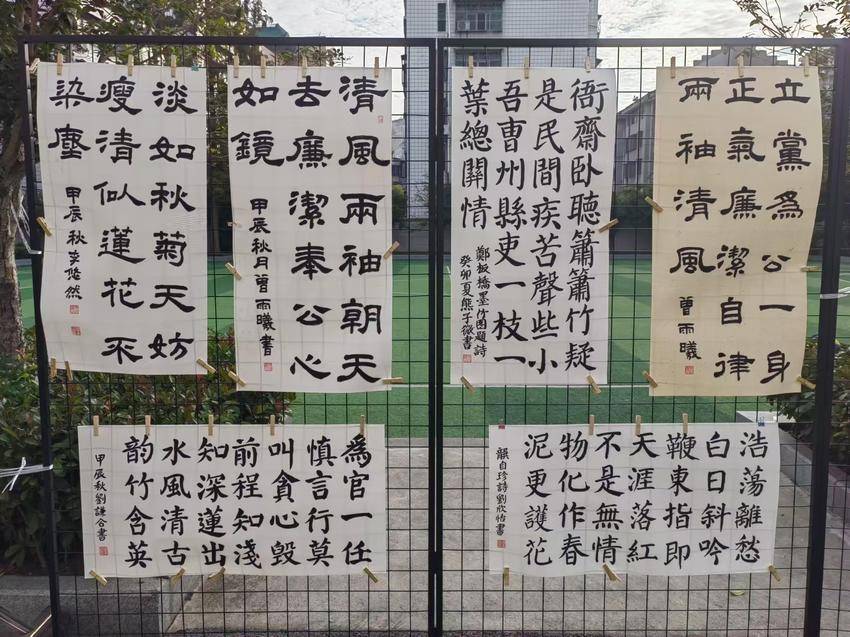 淡如秋菊天妨
瘦清似蓮花不
染塵
甲辰秋李悠然
清風兩袖朝天
去廉潔奉公心
如鏡
甲辰秋月曾雨曦書
衙齋臥聽簫簫竹疑
是民間疾苦聲些小
吾曹州縣吏一枝一
葉總關情
鄭板橋墨竹图題詩
癸卯夏熊子薇書
立黨為公一身
正氣廉潔自律
兩袖清風
曾雨曦
為官一任
慎言行莫
叫貪心毀
前程知淺
知深蓮出
水風清古
韵竹含英
甲辰秋劉謙合書
浩蕩離愁
白日斜吟
鞭東指即
天涯落紅
不是無情
物化作春
泥更護花
龔自珍詩劉欣怡書